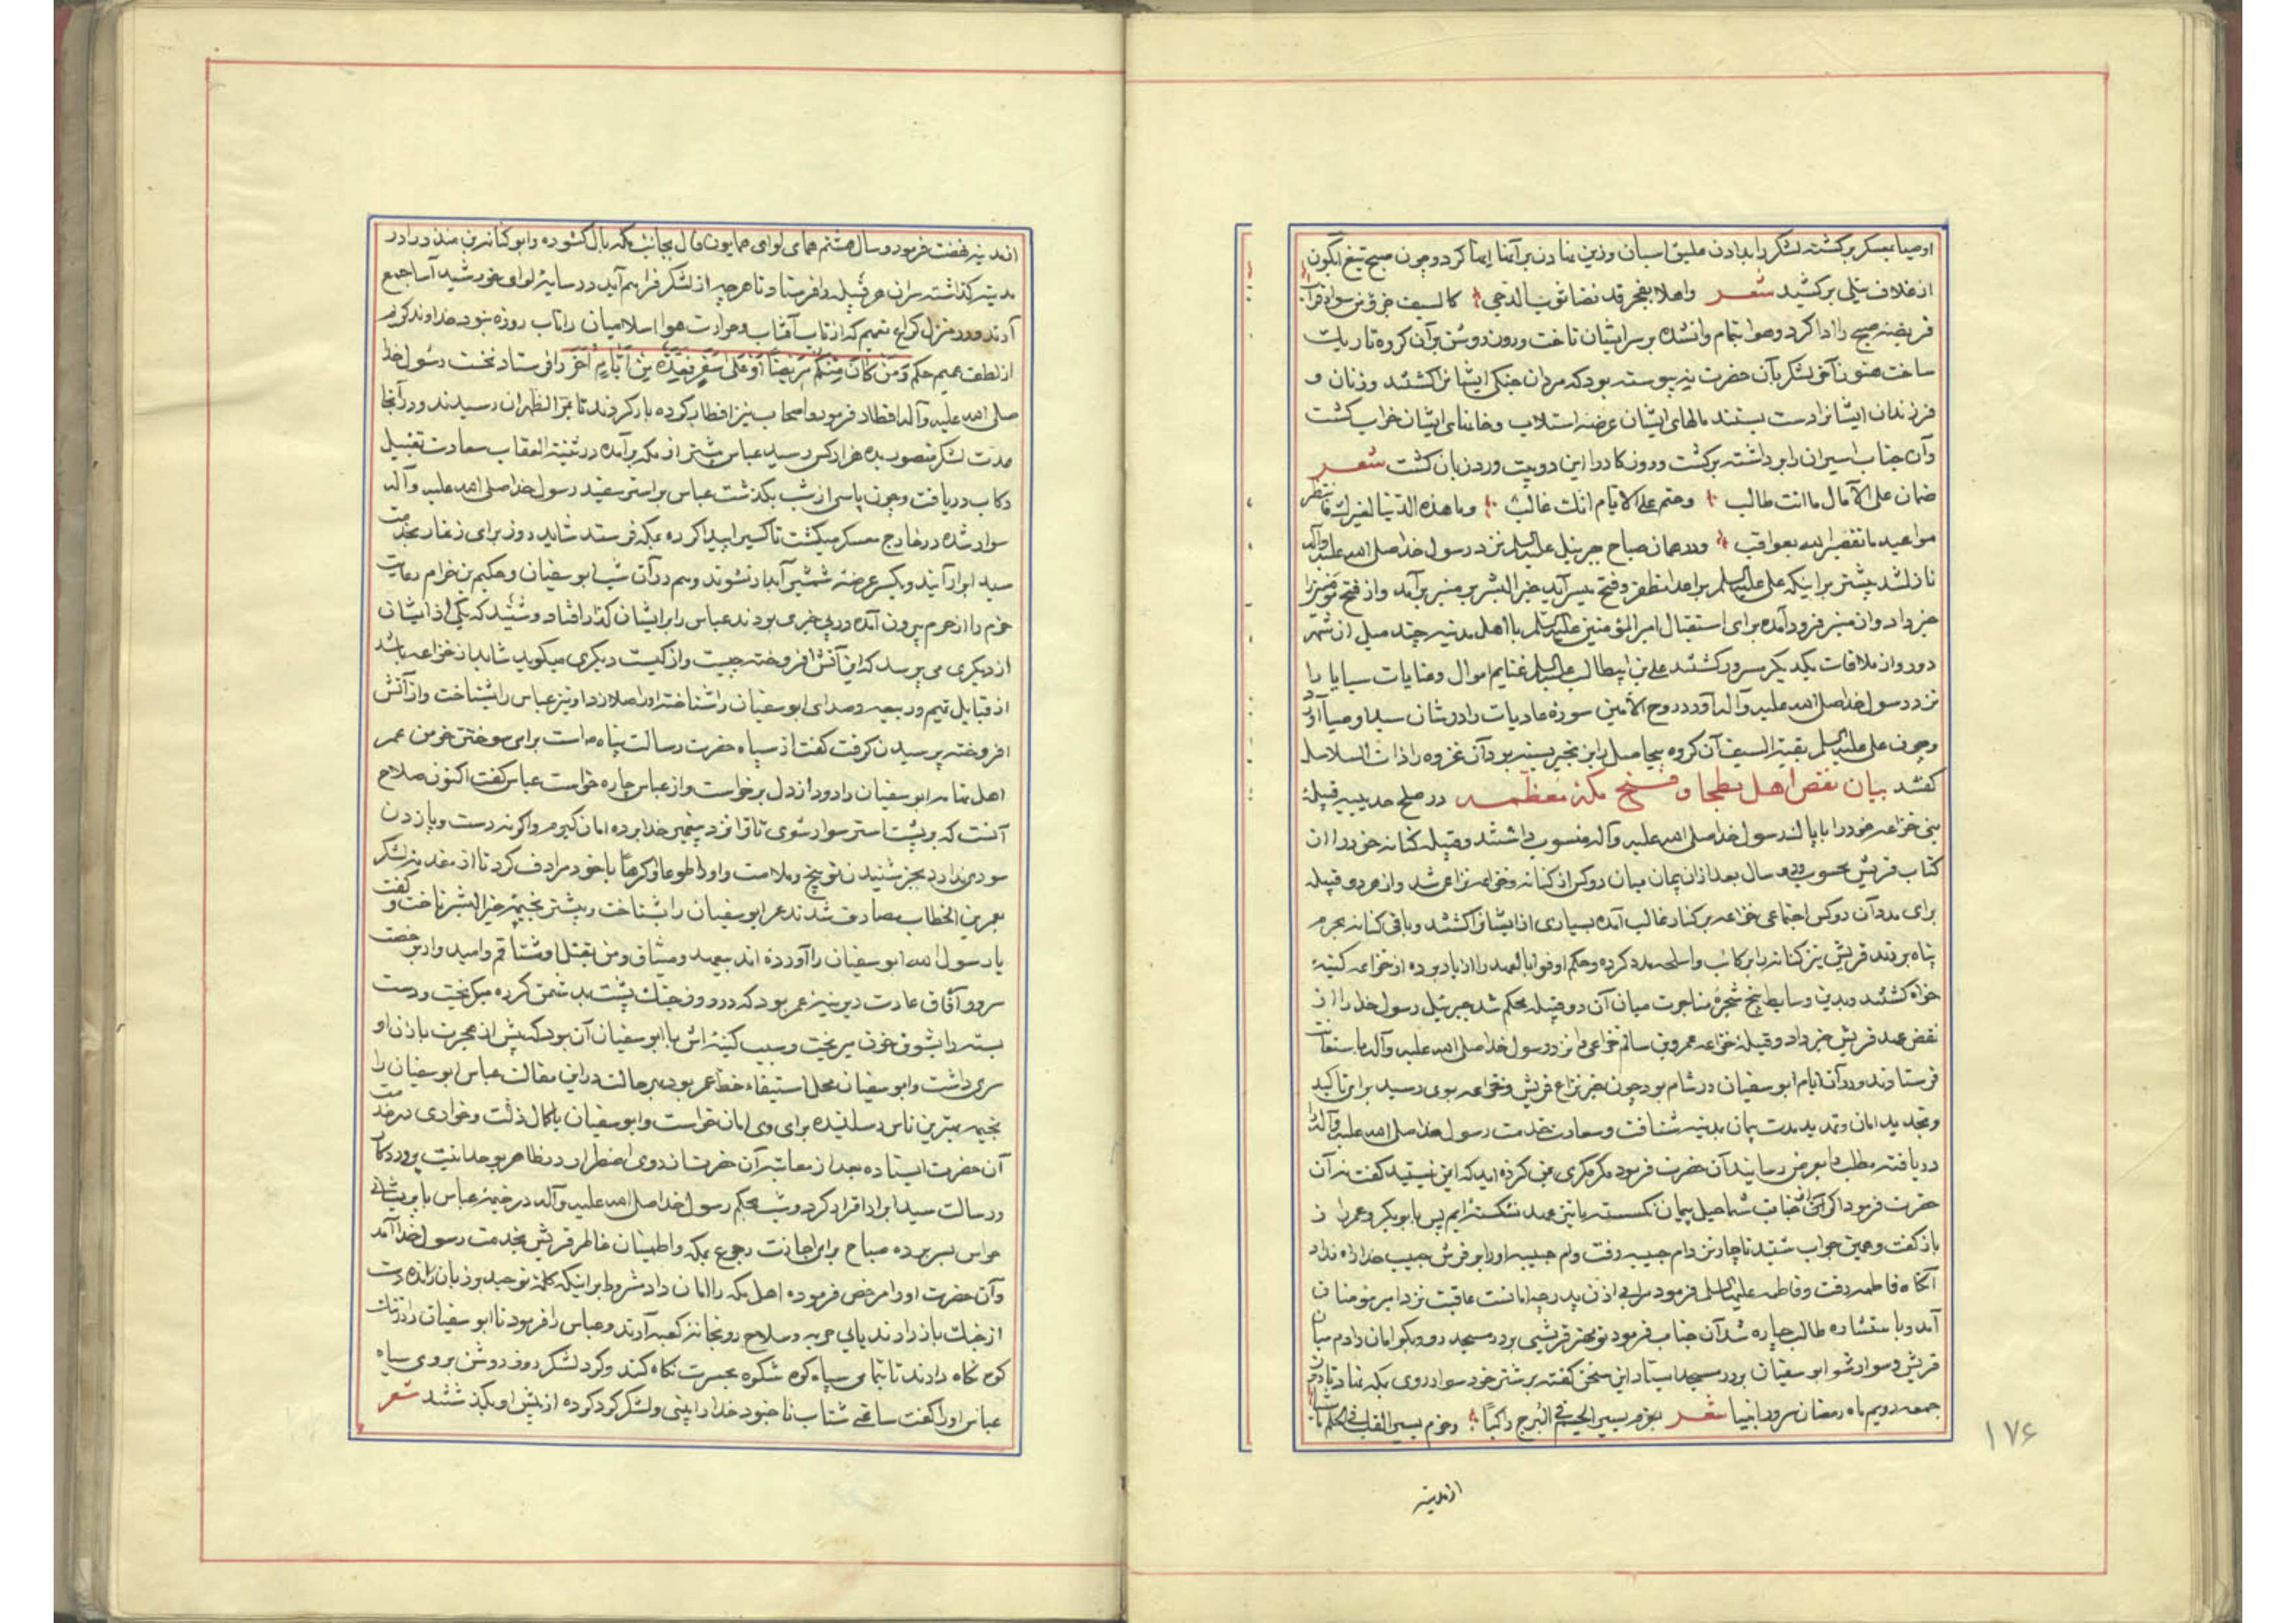 اوصیا بمعسکر برگشته لشکر را بدادن علیق اسبان و زین نهادن بر آنها ایما کرد و چون صبح تیغ آبگون
از غلاف نیلی برکشید شعر واهلا بفجر قد نضا ثوب الدجی کالسیف جرد من سواد قراب
فریضه صبح را ادا کرد و هوا بتمام وانشده بر سر ایشان تاخت و روز روشن بر آن گروه تاریک
ساخت هنوز آخر لشکر بآن حضرت نه پیوسته بود که مردان جنگی ایشانرا کشتند و زنان و
فرزندان ایشانرا دست بستند مالهای ایشان عرضه استلاب و خانهای ایشان خراب گشت
و آن جناب اسیران را برداشته برگشت و روزگار را این دو بیت ورد زبان گشت شعر
ضمان علی الآمال ما انت طالب وحتم علی الایام انک غالب وما هذه الدنیا لغیرک فانتظر
مواعید ما تقضی به بعواقب و در همان صباح جبرئیل علیه السلم نزد رسول خدا صلی الله علیه وآله
نازل شد مبشر بر اینکه علی علیه السلم بر اعدا مظفر و فتح میسر آید خیر البشر بر منبر برآمد و از فتح
خبر داد و از منبر فرود آمده برای استقبال امیر المؤمنین علیه السلم با اهل مدینه چند میل از شهر
دور و از ملاقات یکدیگر مسرور گشتند علی بن ابیطالب علیه السلم غنایم اموال و سبایا را
نزد رسول خدا صلی الله علیه وآله آورد و روح الامین سوره عادیات را در شان سید اوصیا آورد
و چون علی علیه السلم بقیة السیف آن گروه بیحاصل را بزنجیر بسته بود آن غزوه را ذات السلاسل
گفتند بیان نقض اهل بطحا و فتح مکه معظمه در صلح حدیبیه قبیله
بنی خزاعه خود را با پاک رسول خدا صلی الله علیه وآله منسوب داشتند و قبیله کنانه خود را از
کتاب قریش محسوب و دو سال بعد از آن پیمان میان دو کس از کنانه و خزاعه نزاعی شد و از هر دو قبیله
برای مدد آن دو کس اجتماعی خزاعه بر کنانه غالب آمده بسیاری از ایشانرا کشتند و باقی کنانه بحرم
پناه بردند قریش نیز کنانه را برکائب و اسلحه مدد کرده و حکم اوفوا بالعهد را از یاد برده از خزاعه کینه
خواه گشتند و بدین وسایط بیخ شجره مناجرت میان آن دو قبیله محکم شد جبرئیل رسول خدا را از
نقض عهد قریش خبر داد و قبیله خزاعه عمرو بن سالم خزاعی را نزد رسول خدا صلی الله علیه وآله باستغاثت
فرستادند و در آن ایام ابو سفیان در شام بود چون خبر نزاع قریش و خزاعه بوی رسید برای تاکید
و تجدید امان و تمدید مدت پیمان بمدینه شتافت و سعادت خدمت رسول خدا صلی الله علیه وآله را
دریافته مطلب را بعرض رسانید آن حضرت فرمود مگر مکری نمی کرده اید که این نیستید گفت نه آن
حضرت فرمود اگر از جناب شما حبل پیمان نگسسته ما نیز عهد نشکسته ایم پس با بوبکر و عمر راز
باز گفت و همین جواب شنید ناچار نزد ام حبیبه رفت و ام حبیبه او را بر فرش حبیب خدا راه نداد
آنگاه فاطمه رفت و فاطمه علیها السلم فرمود مرا بی اذن پدر چه امانست عاقبت نزد امیر مومنان
آمد و باستشاره طالب چاره شد آن جناب فرمود تو مهتر قریشی بر در مسجد رو و بگو امان دادم میان
قریش و سوار شو ابو سفیان بر در مسجد ایستاد این سخن گفته بر شتر خود سوار روی بمکه نهاد تا در روز
جمعه دویم ماه رمضان سرور انبیا شعر بعزم یسیر الجسم فی البرج راکبا وحزم یسیر القلب فی الحلم
از مدینه
۱۷۶
از مدینه نهضت فرمود و سال هشتم همای لوای همایون فال بجانب مکه بال گشوده و ابو کنانه بن منذر را در
مدینه گذاشته سران هر قبیله را فرستاد تا هر چه از لشکر فراهم آید در سایه لوای خورشید آسا جمع
آرند و در منزل کراع نعیم که از تاب آفتاب و حرارت هوا اسلامیان را تاب روزه نبود خداوند کریم
از لطف عمیم حکم وَمَن كَانَ مِنكُم مَرِيضًا أَوْ عَلَى سَفَرٍ فَعِدَّةٌ مِنْ أَيَّامٍ أُخَر را فرستاد نخست رسول خدا
صلی الله علیه وآله افطار فرمود و اصحاب نیز افطار کرده بار کردند تا بمر الظهران رسیدند و در آنجا
مدت لشکر منصور بده هزار کس رسید عباس پیشتر از مکه برآمده در ثنیة العقاب سعادت تقبیل
رکاب دریافت و چون پاسی از شب بگذشت عباس بر استر سفید رسول خدا صلی الله علیه وآله
سوار شده در خارج معسکر میگشت تا کسیرا پیدا کرده بمکه فرستد شاید روز برای زنهار بخدمت
سید ابرار آیند و یکسر عرضه شمشیر آبدار نشوند و هم در آن شب ابو سفیان و حکیم بن خرام رعایت
حزم را از حرم بیرون آمده در پی خبری بودند عباس را بر ایشان گذار افتاد و شنید که یکی از ایشان
از دیگری می پرسد که این آتش افروخته چیست و از کیست دیگری میگوید شاید از خزاعه باشد
از قبایل تیم و ربیعه و صدای ابو سفیان را شناخته او را صلا زد او نیز عباس را شناخت و از آتش
افروخته پرسیدن گرفت گفت از سپاه حضرت رسالت پناه است برای سوختن خرمن عمر
اهل تهامه ابو سفیان را دود از دل برخواست و از عباس چاره خواست عباس گفت اکنون صلاح
آنست که بر پشت استر سوار شوی تا ترا نزد پیغمبر خدا برده امان گیرم و اگر نه دست و پا زدن
سودی ندارد بجز شنیدن توبیخ و ملامت و او را طوعا و کرها با خود مرادف کرد تا از مقدمه لشکر
بعمر بن الخطاب مصادف شدند عمر ابو سفیان را بشناخت و پیشتر بخیمه خیر البشر تاخت و گفت
یا رسول الله ابو سفیان را آورده اند بیعهد و میثاق و من بقتل او مشتاقم و امیدوار برخصت
سرور آفاق عادت دیرینه عمر بود که در روز جنگ پشت بدشمن کرده میگریخت و دست
بسته را بشوق خون میریخت و سبب کینه اش با ابو سفیان آن بود که پیش از هجرت با زن او
سری داشت و ابو سفیان مخل استیفاء حظ عمر بود بهر حالت در این مقالت عباس ابو سفیان را
بخیمه بهترین ناس رسانیده برای وی امان خواست و ابو سفیان با کمال ذلت و خواری در خدمت
آن حضرت ایستاده بعد از معاتبه آن حضرت از روی اضطرار در ظاهر بوحدانیت پروردگار
و رسالت سید ابرار اقرار کرد و شب بحکم رسول خدا صلی الله علیه وآله در خیمه عباس با پریشانی
حواس بسر برده صباح برای اجازت رجوع بمکه و اطمینان خاطر قریش بخدمت رسول خدا آمد
و آن حضرت او را مرخص فرموده اهل مکه را امان داد مشروط بر اینکه کلمه توحید بر زبان رانده دست
از جنگ باز دارند یا بی حربه و سلاح رو بخانه کعبه آرند و عباس را فرمود تا ابو سفیان را در تنگ
کوه نگاه دارند تا بتمامی سپاه کوه شکوه بحسرت نگاه کند و گرد لشکر روز روشن بروی سیاه
عباس او را گفت ساعتی شتاب نا جنود خدا را بینی و لشکر گرد کرده از پیش او بگذشتند شعر